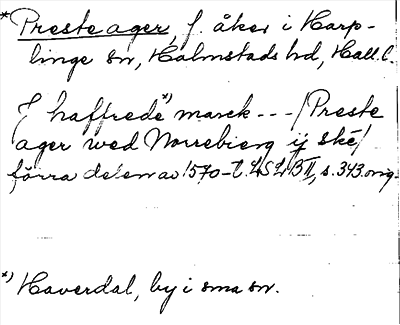 *Presteager, f. åker i Harp-
linge sn, Halmstads hd, Hall. l.
J haffrede*) marck --- / Preste
ager wed Norrebierg ij ské /
förra delen av 1570-t. LSLB II, s. 343. orig.
*) Haverdal, by i sma sn.